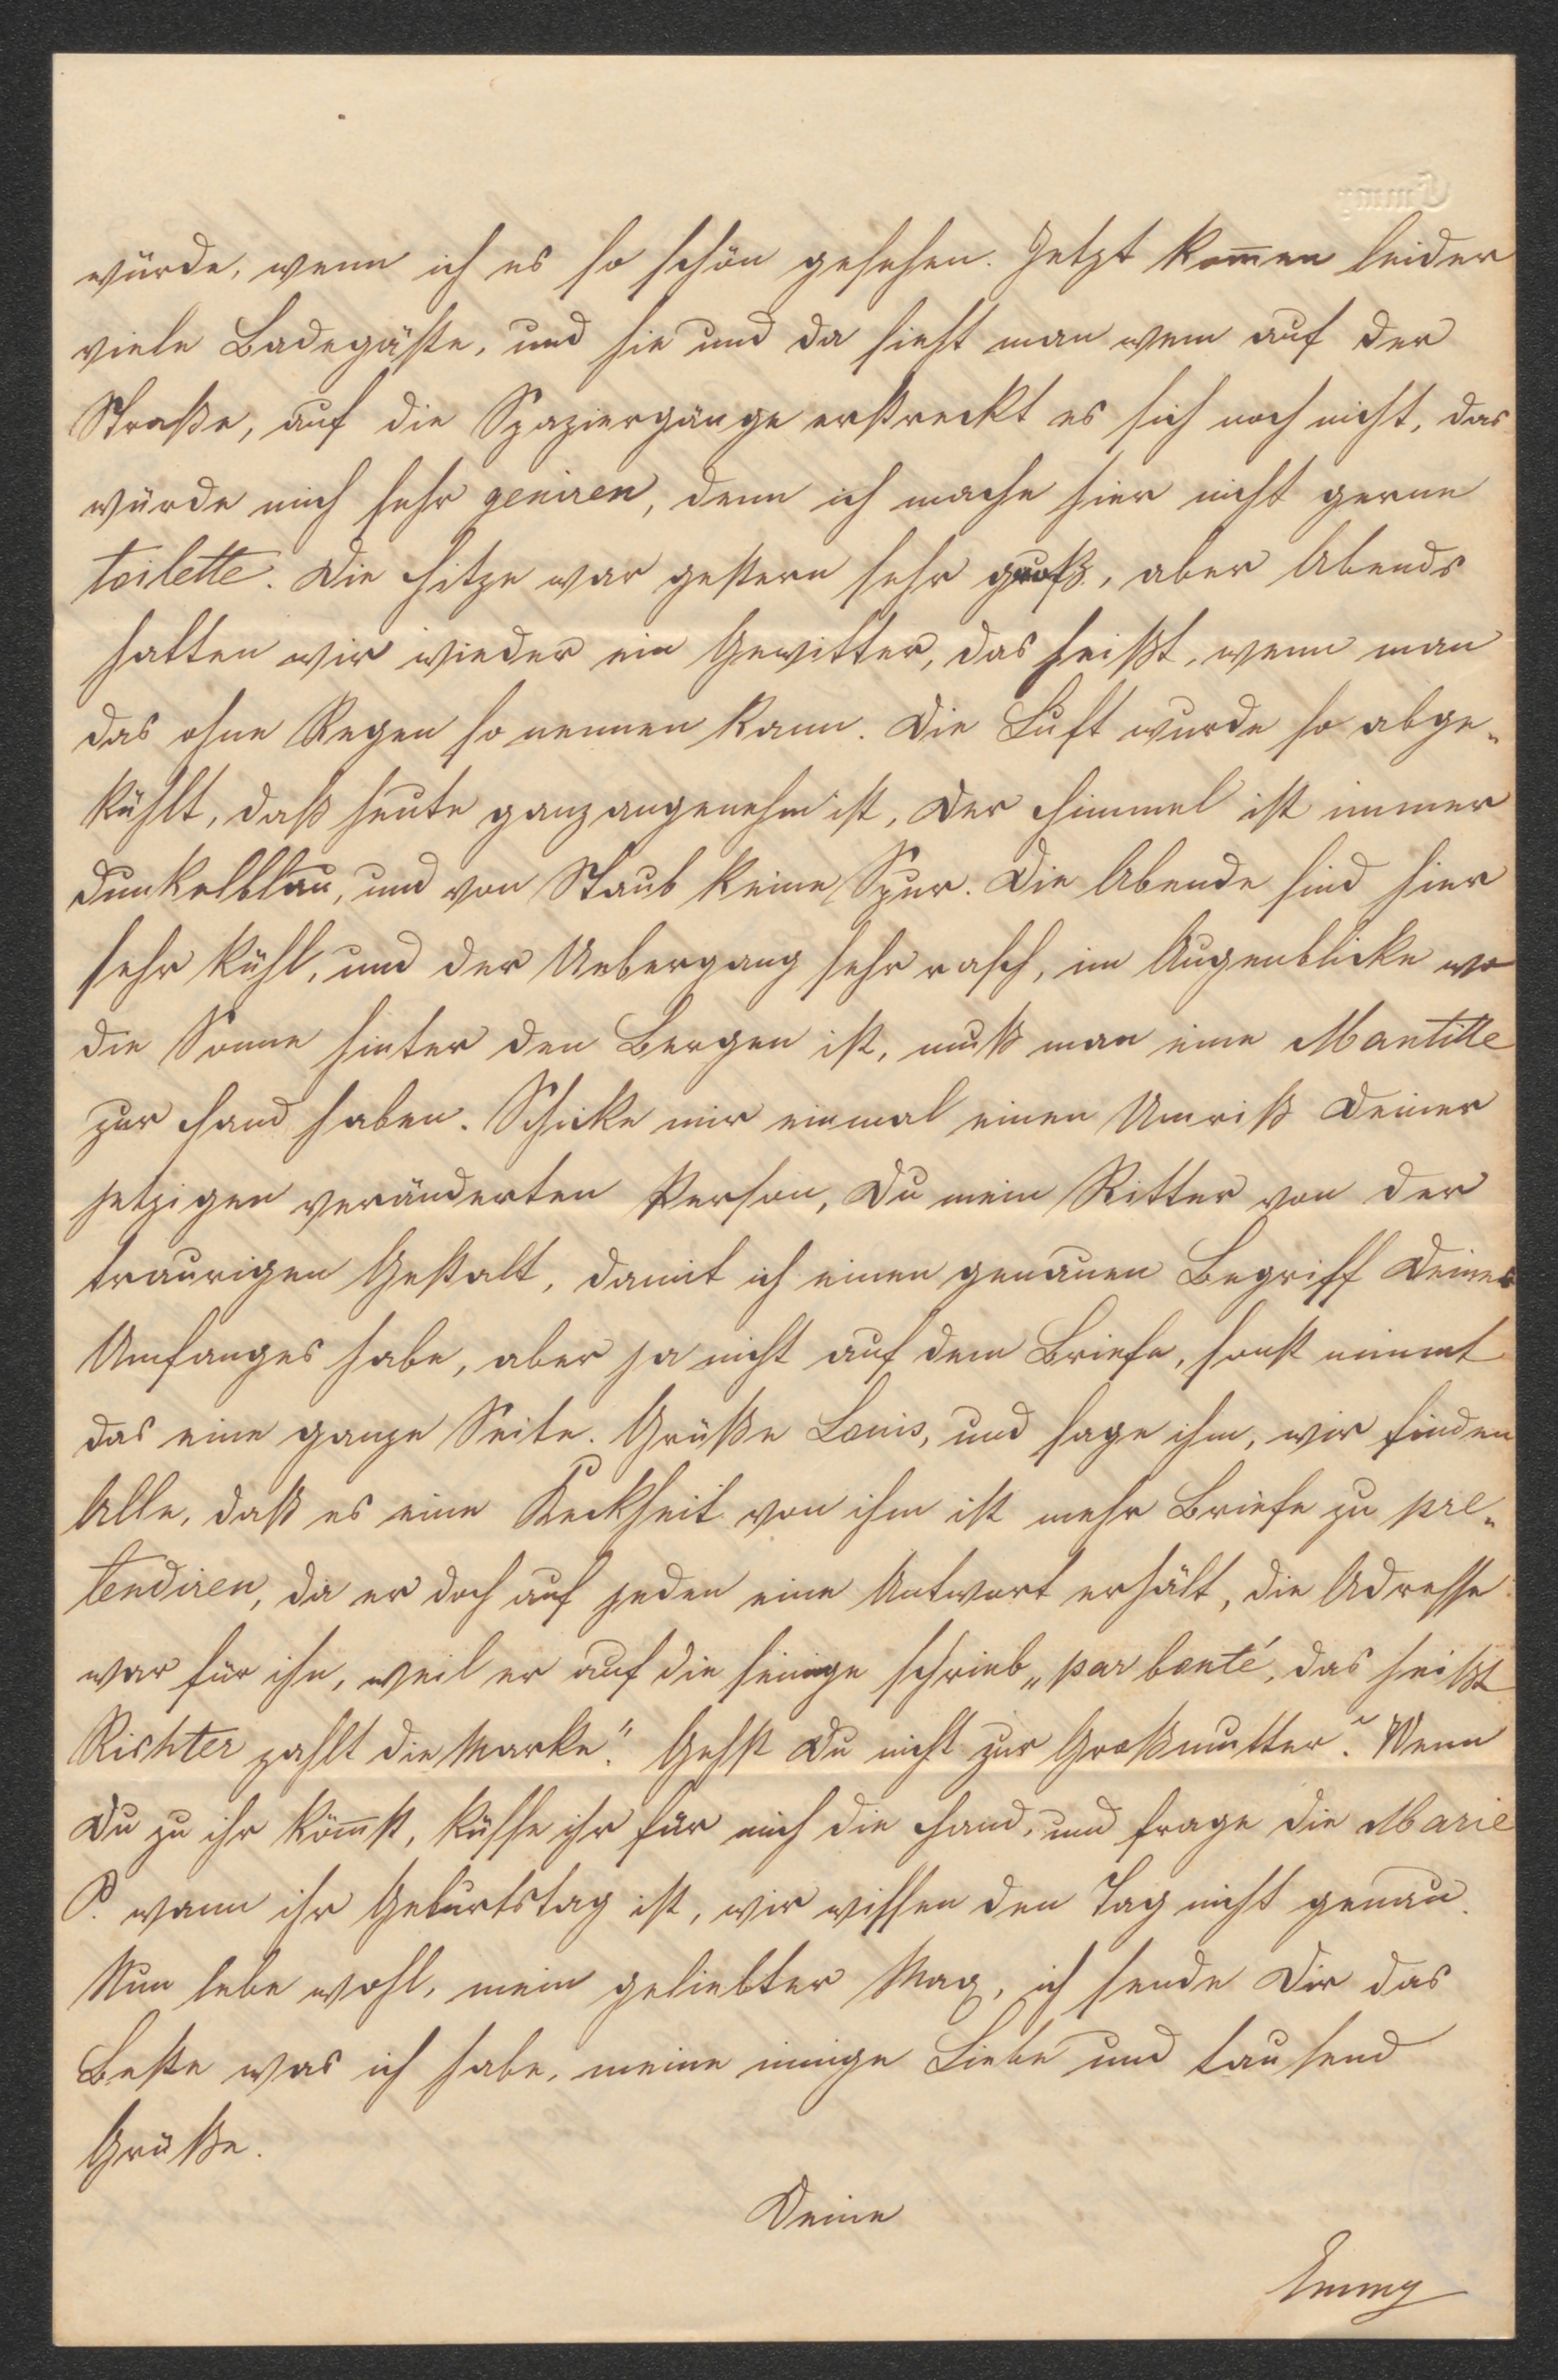 würde, wenn ich es so schön gesehen. Jetzt kom̅en leider
viele Badegäste, und hie und da sieht man wem auf der
Straße, auf die Spaziergänge erstreckt es sich noch nicht, das
würde mich sehr geniren, denn ich mache hier nicht gerne
toilette. Die Hitze war gestern sehr groß, aber Abends
hatten wir wieder ein Gewitter, das heißt, wenn man
das ohne Regen so nennen kann. Die Luft wurde so abge-
kühlt, daß heute ganz angenehm ist, der Himmel ist immer
dunkelblau, und von Staub keine Spur. Die Abende sind hier
sehr kühl, und der Uebergang sehr rasch, im Augenblicke wo
die Sonne hinter den Bergen ist, muß man eine Mantille
zur Hand haben. Schicke mir einmal einen Umriß Deiner
jetzigen veränderten Person, Du mein Ritter von der
traurigen Gestalt, damit ich einen genauen Begriff Deines
Umfanges habe, aber ja nicht auf dem Briefe, sonst nimmt
das eine ganze Seite. Grüße Louis, und sage ihm, wir finden
Alle, daß es eine Keckheit von ihm ist mehr Briefe zu pre-
tendiren, da er doch auf jeden eine Antwort erhält, die Adresse
war für ihn, weil er auf die seinige schrieb „par bonté, das heißt
Richter zahlt die Marke." Gehst Du nicht zur Großmutter? Wenn
Du zu ihr köm̅st, küsse ihr für mich die Hand, und frage die Marie
P. wann ihr Geburtstag ist, wir wissen den Tag nicht genau.
Nun lebe wohl, mein geliebter Max, ich sende Dir das
Beste was ich habe, meine innige Liebe und tausend
Grüße.
Deine
Emmy